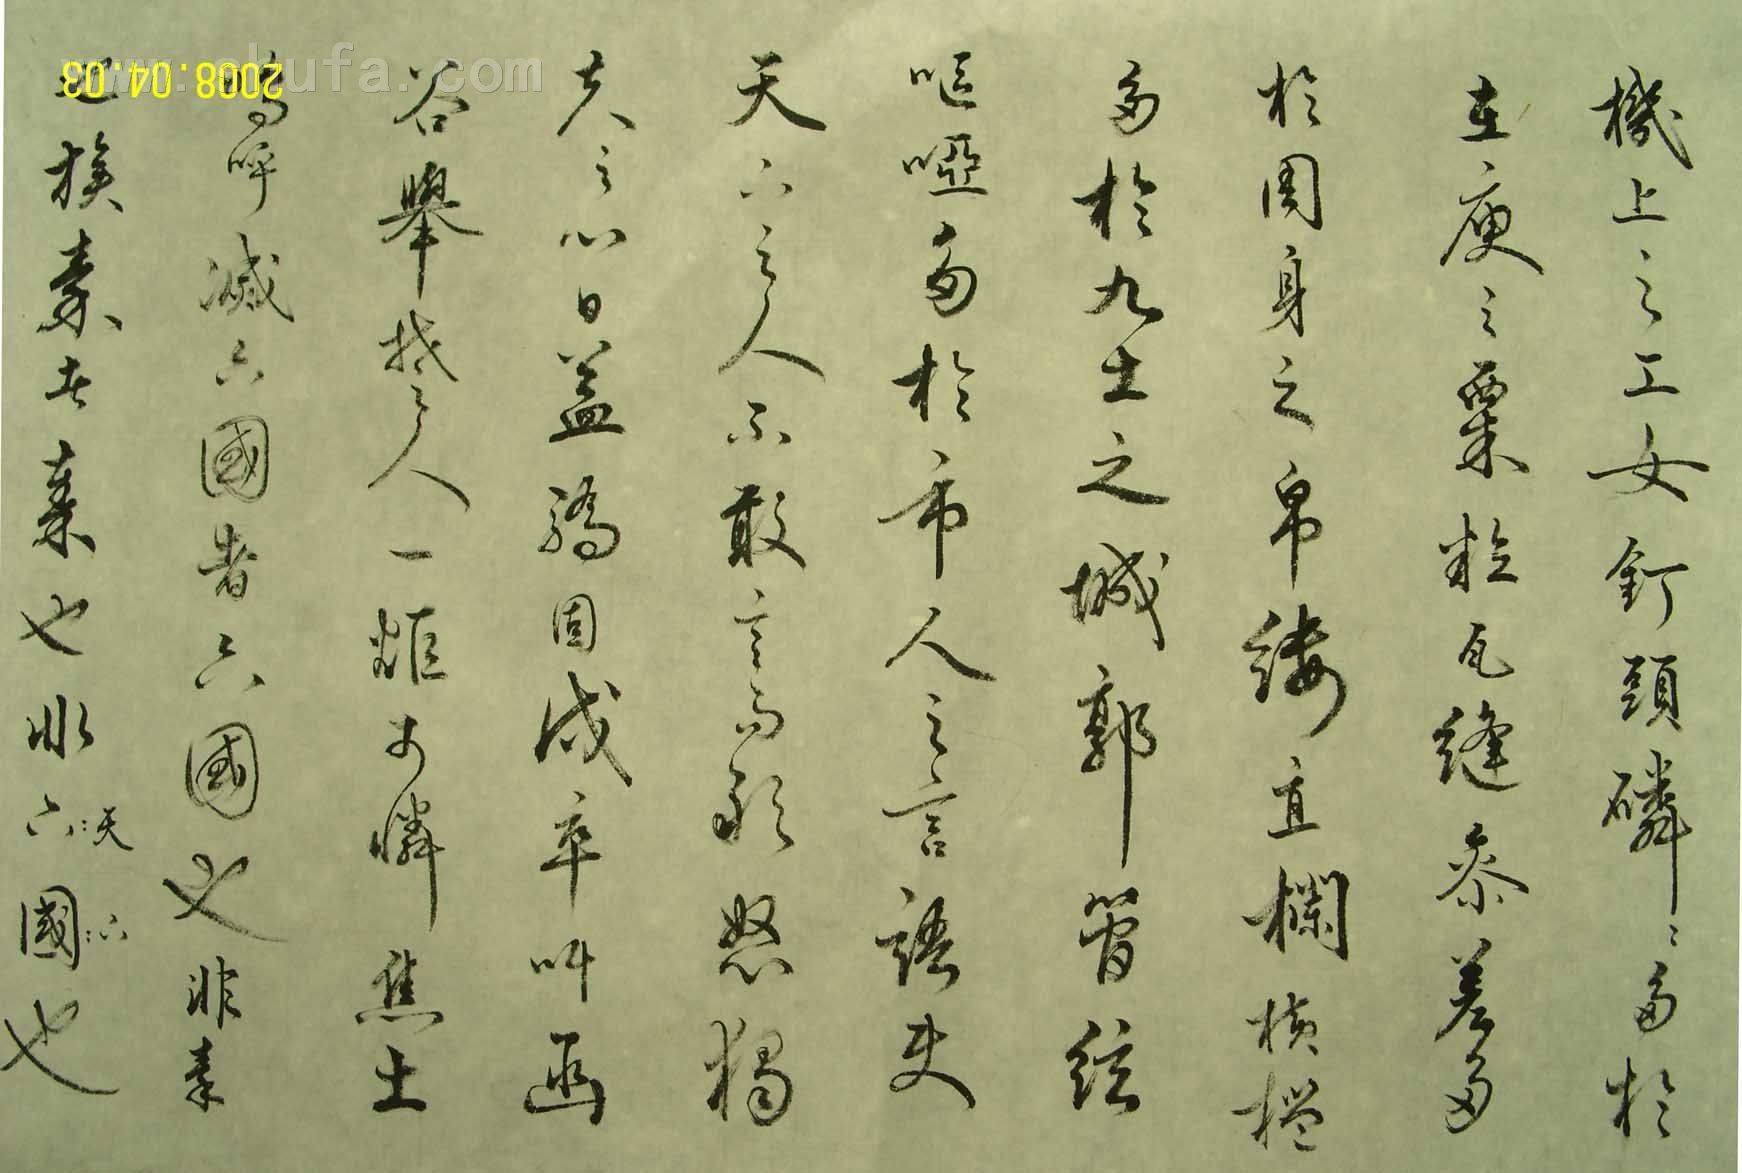 機上之工女釘頭磷〻多於
在庾之粟粒瓦縫參差多
於周身之帛縷直欄橫檻
多於九土之城郭管絃
嘔啞多於市人之言語使
天下之人不敢言而敢怒獨
夫之心日益驕固戍卒叫函
谷舉楚人一炬可憐焦土
嗚呼滅六國者六國也非秦
也族秦者秦也非六國也
天
下
www.shufa.com
2008:04.03